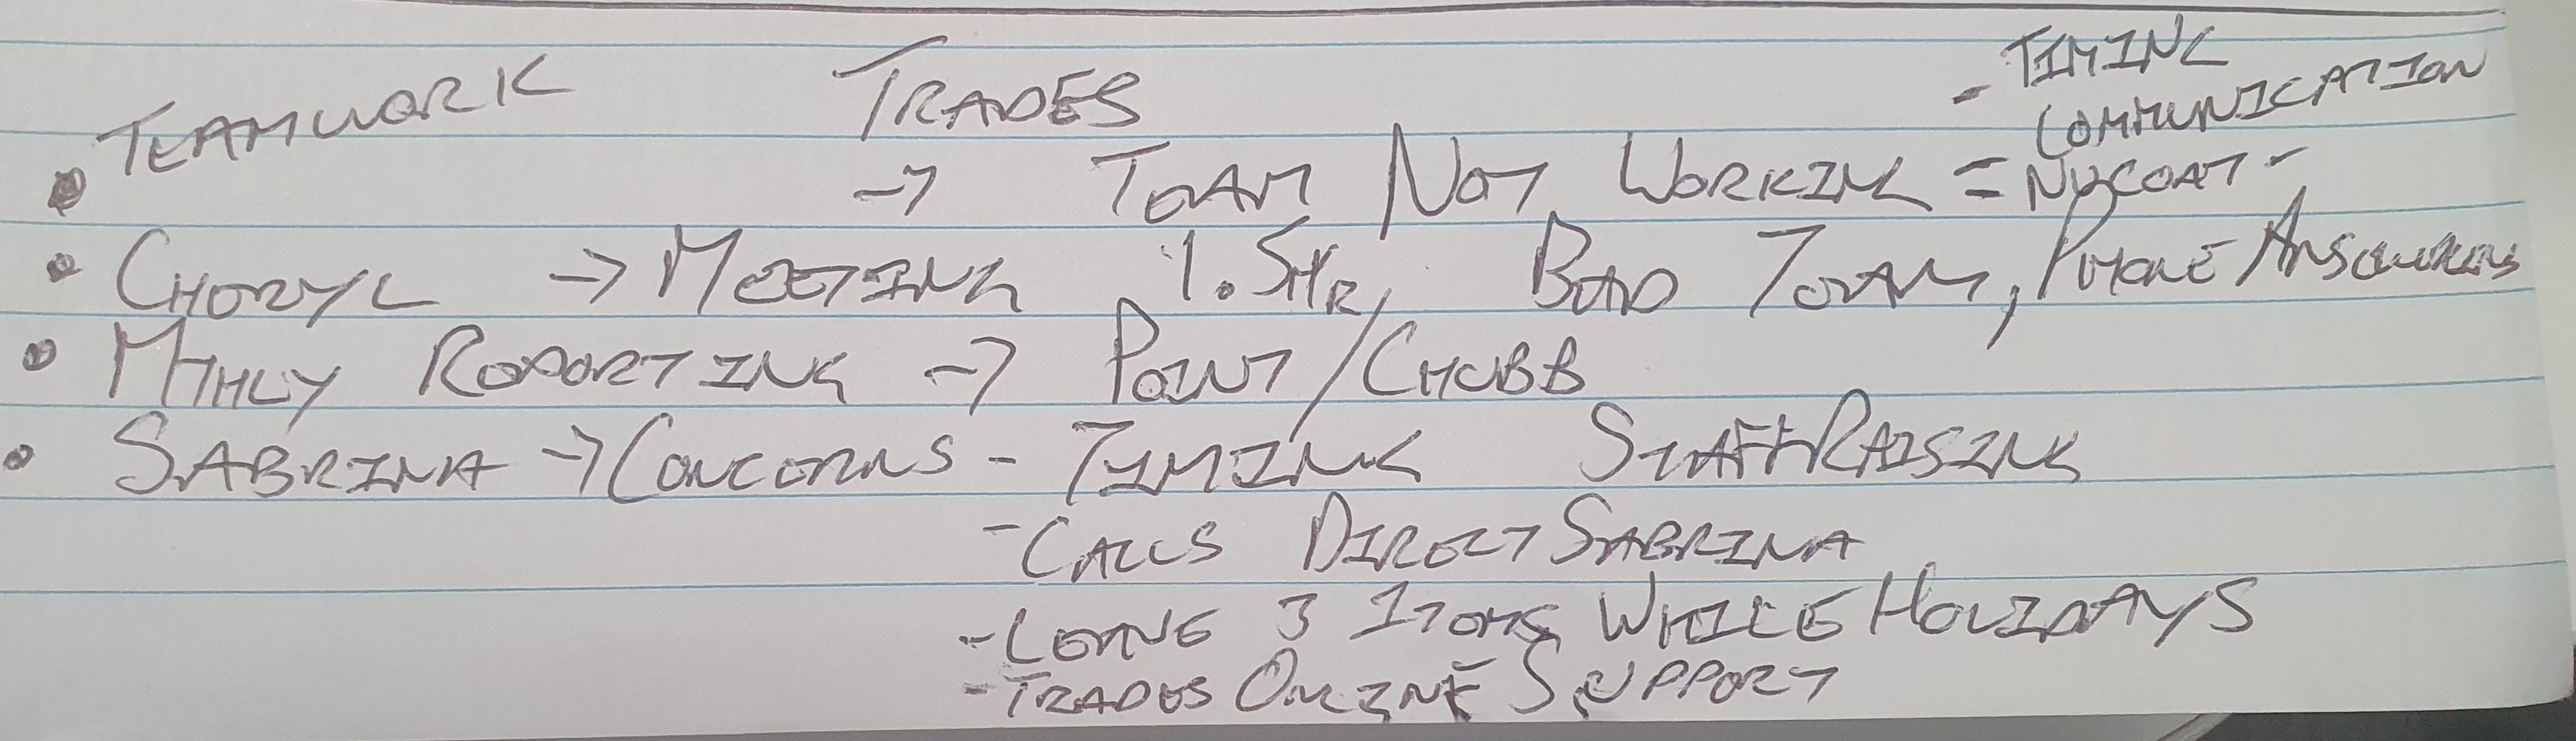 TEAMWORK TRADES - TIMING
COMMUNICATION
• → TEAM NOT WORKING = NUCOAT -
• CHERYL → MEETING 1.5HR, BAD TEAM, PHONE ANSWERING
• MTHLY REPORTING → POINT/CHUBB
• SABRINA → CONCERNS - TIMING STAFF RAISING
- CALLS DIRECT SABRINA
- LEAVE 3 ITEMS WHILE HOLIDAYS
- TRADES ONLINE SUPPORT